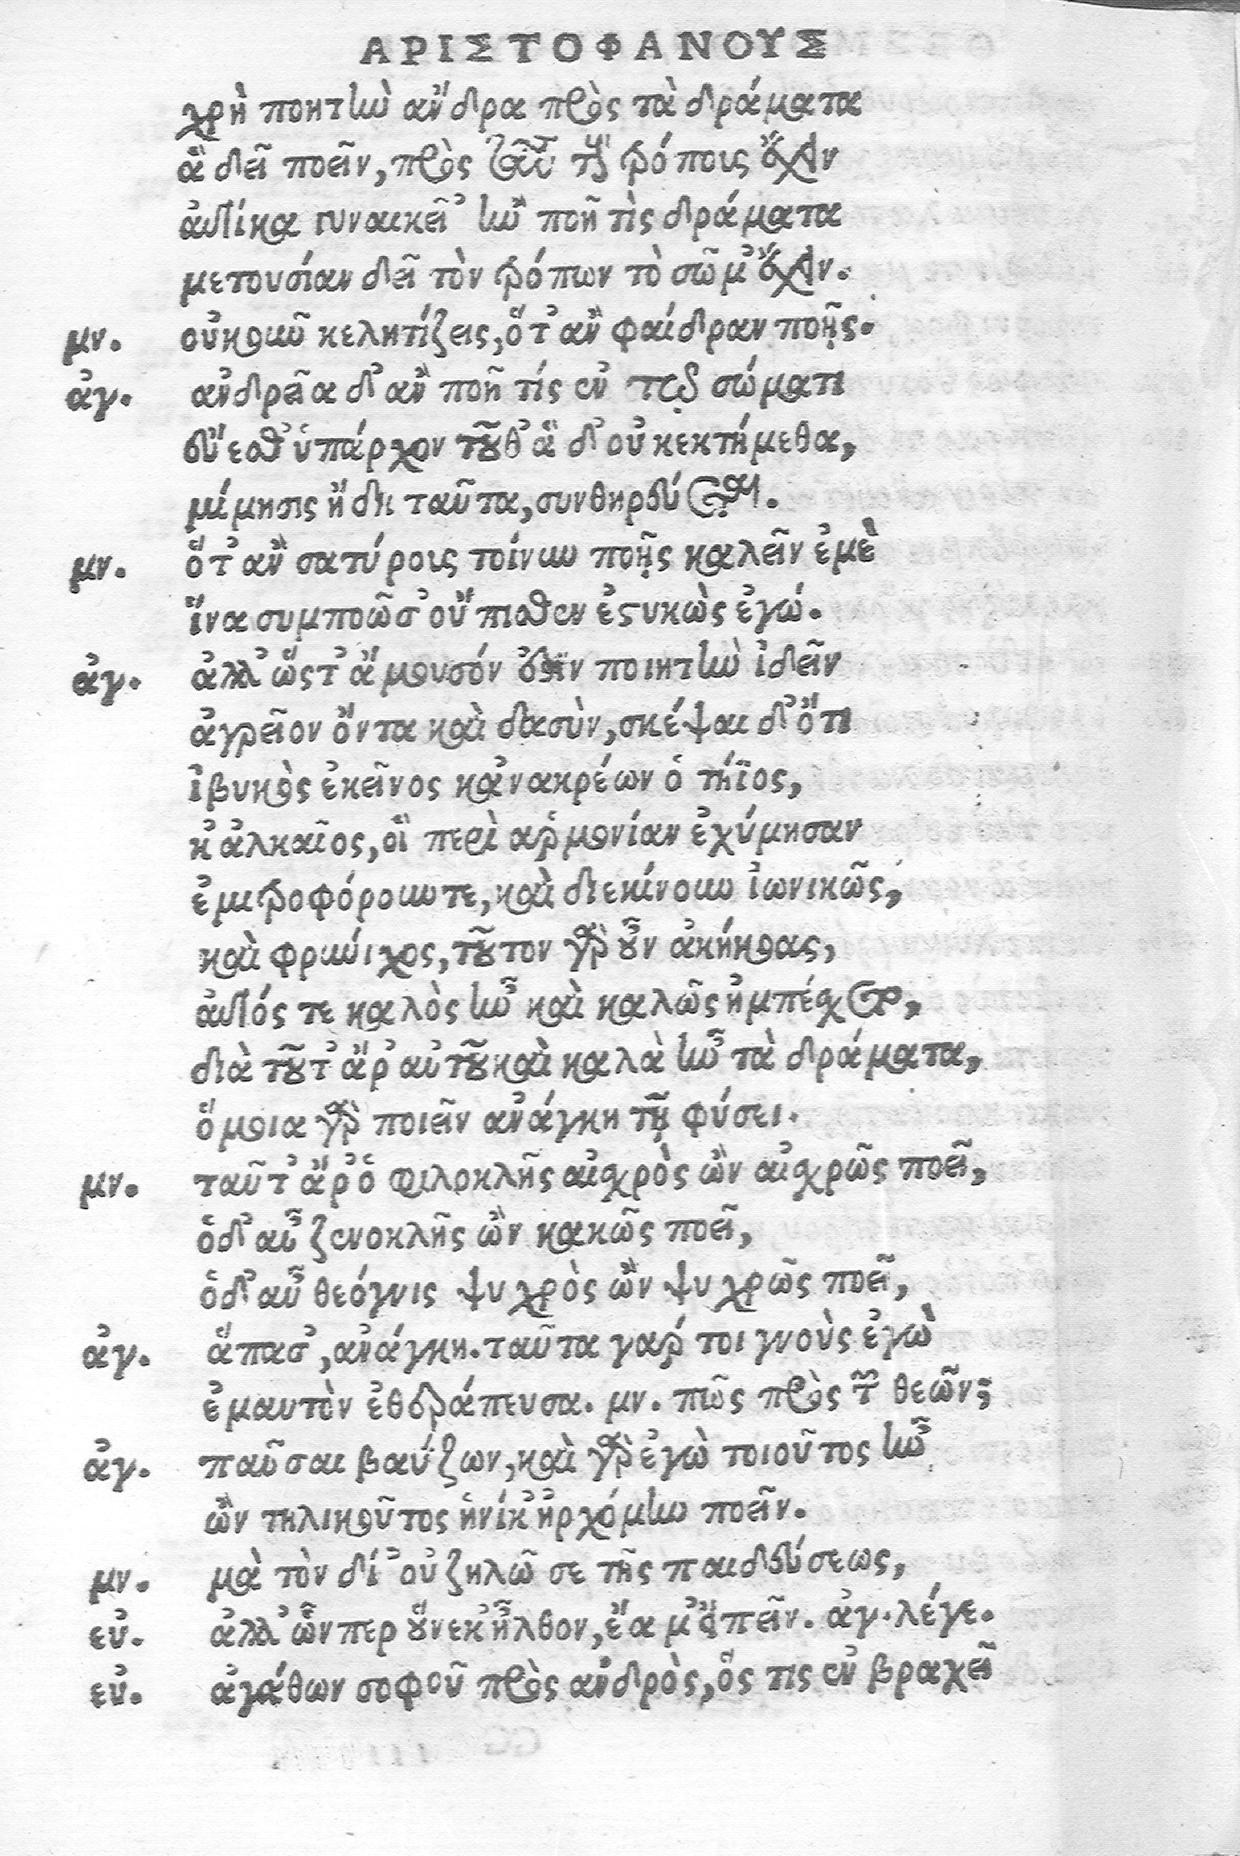 ΑΡΙΣΤΟΦΑΝΟΥΣ
χρὴ ποητὴν ἄνδρα πρὸς τὰ δράματα
ἃ δεῖ ποεῖν, πρὸς ταῦτα τοὺς τρόπους ἔχειν
αὐτίκα γυναικεῖ' ἢν ποῇ τὶς δράματα
μετουσίαν δεῖ τὸν τρόπων τὸ σῶμ' ἔχειν.
μν. οὐκοῦν κελητίζεις, ὅτ' ἂν φαίδραν ποῇς.
ἀγ. ἀνδρεῖα δ' ἂν ποῇ τίς ἐν τῷ σώματι
ἔνεσθ' ὑπάρχον τοῦθ' ἃ δ' οὐ κεκτήμεθα,
μίμησις ἤδη ταῦτα, συνθηρεύεται.
μν. ὅτ' ἂν σατύρους τοίνυν ποῇς καλεῖν ἐμὲ
ἵνα συμποῶσ' οὔπισθεν ἐστυκὼς ἐγώ.
ἀγ. ἀλλ' ὥστ' ἄμουσόν ἐστιν ποιητὴν ἰδεῖν
ἀγρεῖον ὄντα καὶ δασὺν, σκέψαι δ' ὅτι
ἰβυκὸς ἐκεῖνος κἀνακρέων ὁ τήϊος,
κἀλκαῖος, οἳ περὶ ἁρμονίαν ἐχύμησαν
ἐμιτροφόρουν τε, καὶ διεκίνουν ἰωνικῶς,
καὶ φρύνιχος, τοῦτον γὰρ οὖν ἀκήκοας,
αὐτός τε καλὸς ἦν καὶ καλῶς ἠμπέσχετο,
διὰ τοῦτ' ἄρ' αὐτοῦ καὶ καλὰ ἦν τὰ δράματα,
ὅμοια γὰρ ποιεῖν ἀνάγκη τῇ φύσει.
μν. ταῦτ' ἄρ' ὁ φιλοκλῆς αἰσχρὸς ὢν αἰσχρῶς ποεῖ,
ὁ δ' αὖ ξενοκλῆς ὢν κακῶς ποεῖ,
ὁ δ' αὖ θεόγνις ψυχρὸς ὢν ψυχρῶς ποεῖ,
ἀγ. ἅπασ', ἀνάγκη. ταῦτα γάρ τοι γνοὺς ἐγὼ
ἐμαυτὸν ἐθεράπευσα. μν. πῶς πρὸς τῶν θεῶν;
ἀγ. παῦσαι βαΰζων, καὶ γὰρ ἐγὼ τοιοῦτος ἦν
ὢν τηλικοῦτος ἡνίκ' ἠρχόμην ποεῖν.
μν. μὰ τὸν δί' οὐ ζηλῶ σε τῆς παιδεύσεως,
εὐ. ἀλλ' ὧνπερ οὕνεκ' ἦλθον, ἔα μ' εἰπεῖν. ἀγ. λέγε.
εὐ. ἀγάθων σοφοῦ πρὸς ἀνδρὸς, ὅς τις ἐν βραχεῖ